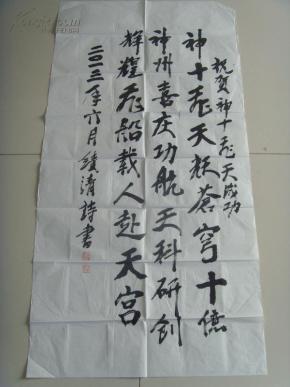 祝贺神十飞天成功
神十飞天探苍穹十億
神州喜庆功航天科研创
辉煌飞船载人赴天宫
二〇一三年六月绩清詩書